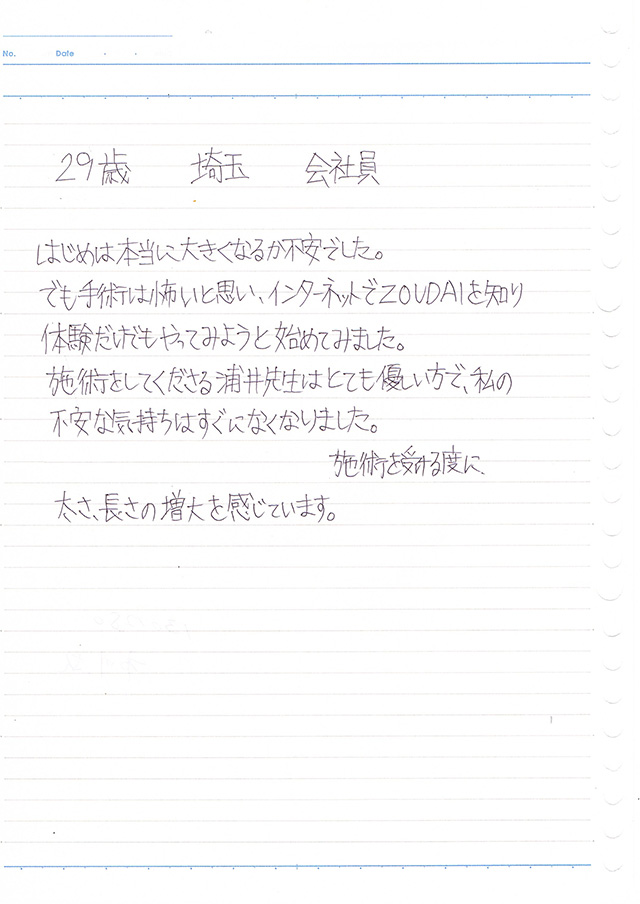 No.
Date
29歳 埼玉 会社員
はじめは本当に大きくなるか不安でした。
でも手術は怖いと思い、インターネットでZOUDAIを知り
体験だけでもやってみようと始めてみました。
施術をしてくださる浦井先生はとても優しい方で、私の
不安な気持ちはすぐになくなりました。
施術を受ける度に、
太さ、長さの増大を感じています。